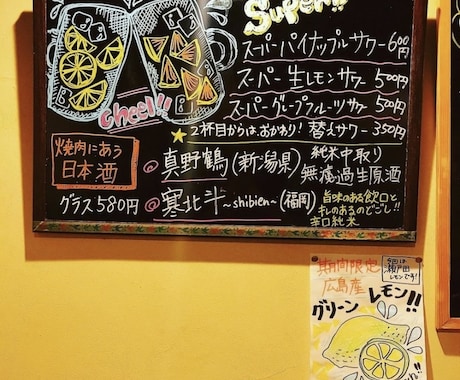 Super!!
スーパーパイナップルサワー 600円
スーパー生レモンサワー 500円
スーパーグレープフルーツサワー 500円
★2杯目からは、おかわり!替えサワー 350円
Cheel!!
焼肉にあう
日本酒
グラス580円
◎真野鶴(新潟県)
純米中取り
無濾過生原酒
◎寒北斗~shibien~(福岡)
旨味のある飲口と
キレのあるのどごし!!
辛口純米
期間限定
広島産
今回は
瀬戸田
レモンです!
グリーンレモン!!